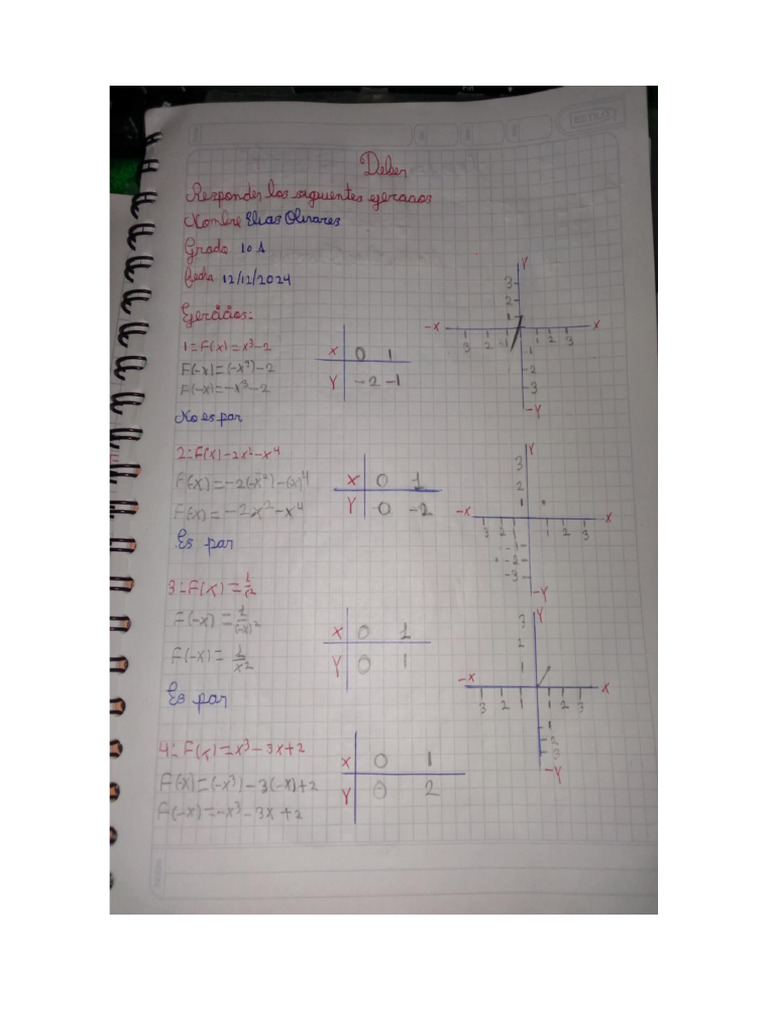 Deber
Responder los siguientes ejercicios
Nombre Elias Olivares
Grado 10 A
Fecha 12/12/2024
Ejercicios:
1=F(x)=x³-2
F(-x)=(-x³)-2
F(-x)=-x³-2
No es par
X 0 1
Y -2 -1
Y
3
2
1
-X 3 2 -1 1 2 3 X
1
-2
-3
-Y
2=F(x)-2x²-x⁴
F(-x)=-2(-x²)-(x)⁴
F(x)=-2x²-x⁴
Es par
X 0 1
Y -0 -2
Y
3
2
1
-X 3 2 1 1 2 3 X
-1
-2
-3
-Y
3=F(x)=1/x²
F(-x)=1/(-x)²
F(-x)=1/x²
Es par
X 0 1
Y 0 1
Y
3
2
1
-X 3 2 1 1 2 3 X
1
2
3
-Y
4=F(x)=x³-3x+2
F(-x)=(-x³)-3(-x)+2
F(-x)=-x³-3x+2
X 0 1
Y 0 2